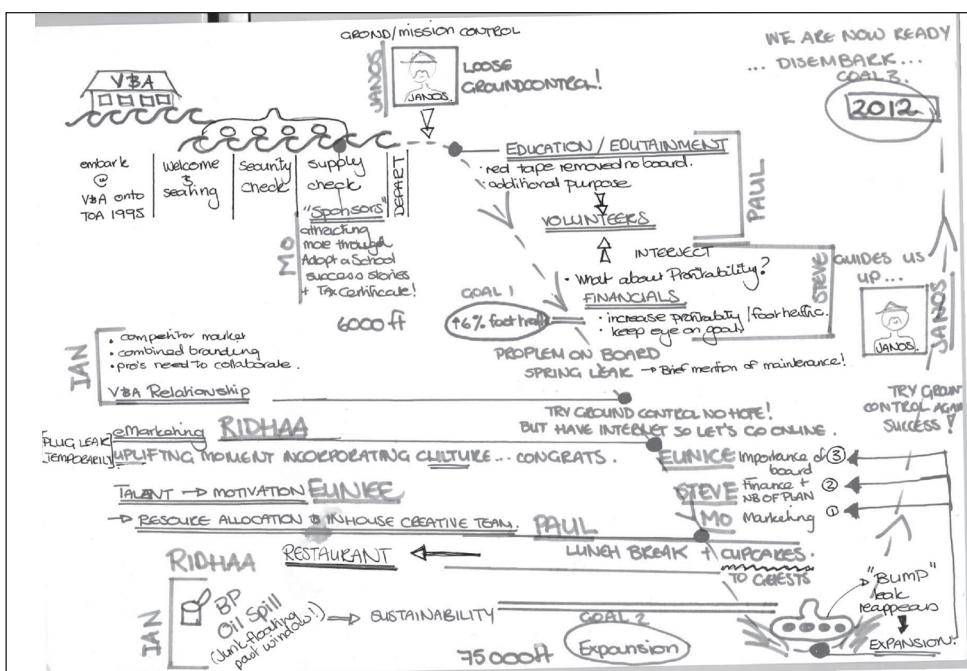 GROND/MISSION CONTROL
JANOS
LOOSE
GROUNDCONTROL!
JANOS.
WE ARE NOW READY
... DISEMBARK...
GOAL 3.
2012
V&A
embark
@
V&A onto
TOA 1995
welcome
&
seating
security
check
supply
check
DEPART
"Sponsors"
MO
attracting
more through
Adopt a School
success stories
+ Tax Certificate!
EDUCATION / EDUTAINMENT
• red tape removed no board.
• additional purpose
VOLUNTEERS
PAUL
INTERJECT
• What about Profitability?
FINANCIALS
• increase Profitability / foot traffic.
• keep eye on goals
STEVE
GUIDES US
UP...
JANOS.
JANOS
GOAL 1
↑6% foot traffic
6000ft
PROPLEM ON BOARD
SPRING LEAK → Brief mention of mainterance!
IAN
• competitor market
• combined branding
• pro's need to collaborate.
V&A Relationship
TRY GROUND CONTROL NO HOPE!
BUT HAVE INTERNET SO LET'S GO ONLINE.
TRY GROUN
CONTROL AGAIN
SUCCESS!
PLUG LEAK
TEMPORARILY
eMarketing RIDHAA
UPLIFTNG MOMENT INCORPORATING CULTURE... CONGRATS.
EUNICE Importance of board ③
STEVE Finance + NB OF PLAN ②
MO Marketing ①
TALENT → MOTIVATION EUNICE
→ RESOURCE ALLOCATION & INHOUSE CREATIVE TEAM. PAUL
LUNCH BREAK + CUPCAKES.
TO GUESTS
RIDHAA RESTAURANT
IAN
BP
Oil Spill
(Junk-floating
past window!!)
→ SUSTAINABILITY
GOAL 2
Expansion
75000ft
"BUMP"
leak
reappears
EXPANSION.